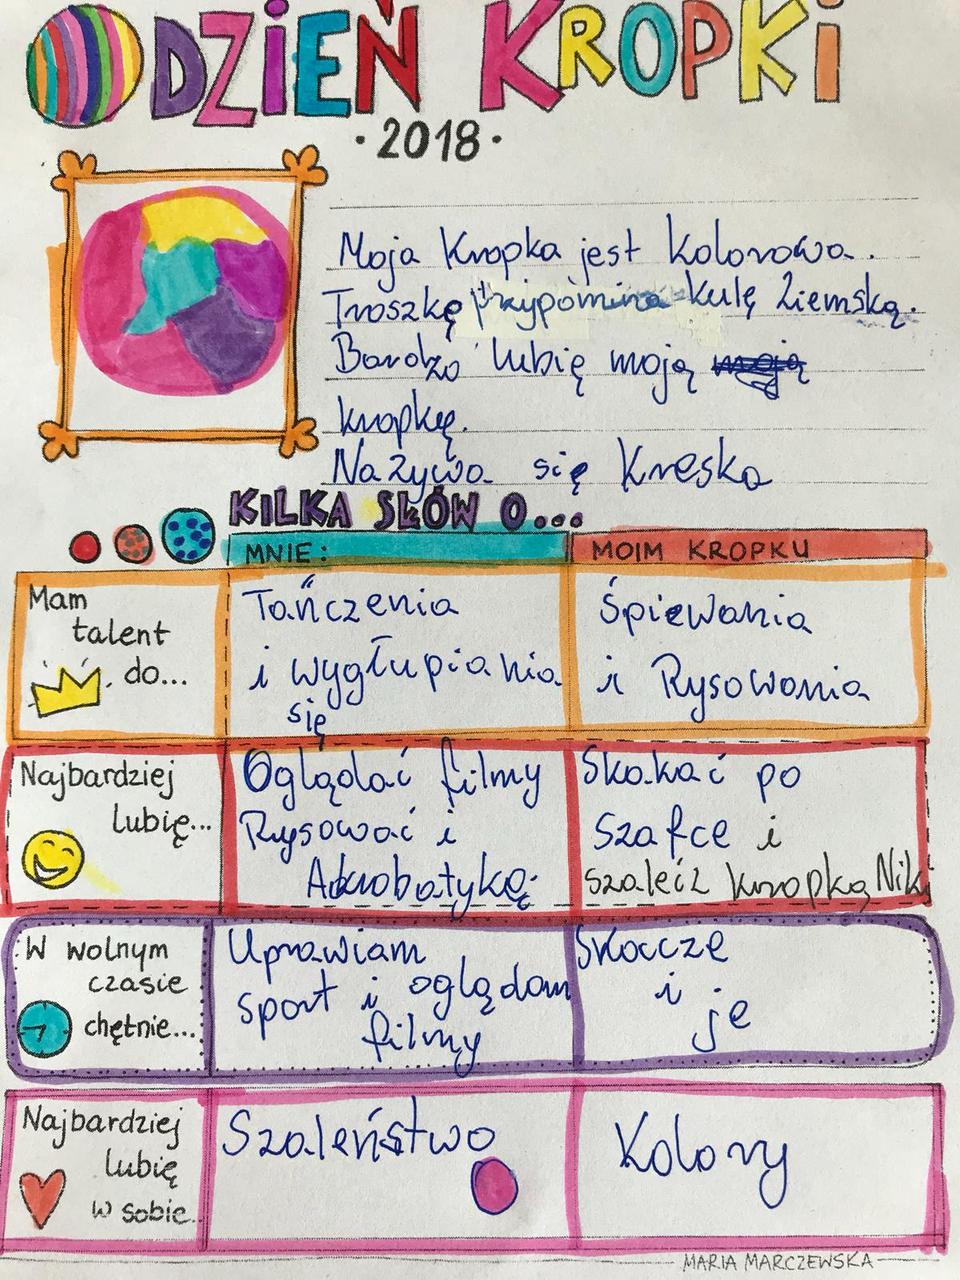 DZIEŃ KROPKI
• 2018 •
Moja Kropka jest kolorowa.
Troszkę przypomina kulę Ziemską.
Bardzo lubię moją moją
kropkę.
Nazywa się Kreska
KILKA SŁÓW O...
MNIE: MOIM KROPKU
Mam
talent
do...
Tańczenia
i wygłupiania
się
Śpiewania
i Rysowania
Najbardziej
lubię...
Oglądać filmy
Rysować i
Akrobatykę.
Skakać po
Szafce i
szaleć z kropką Niki
W wolnym
czasie
chętnie...
Uprawiam
sport i oglądam
filmy
Skacze
i je
Najbardziej
lubię
w sobie...
Szaleństwo
Kolory
MARIA MARCZEWSKA